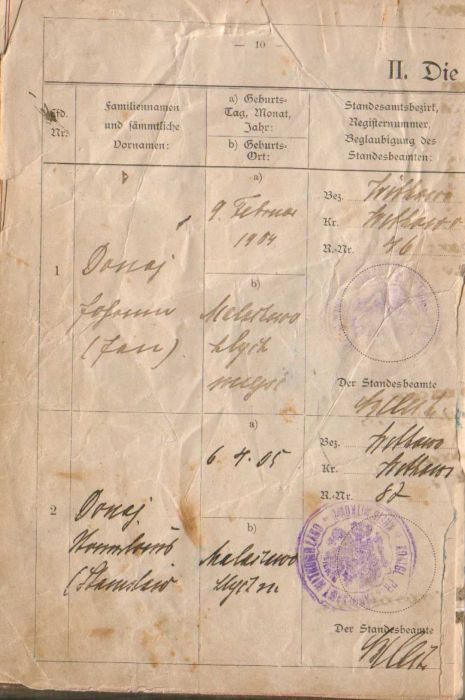 — 10 —
II. Die
Lfd. Nr.
Familiennamen
und sämmtliche
Vornamen:
a) Geburts-
Tag, Monat,
Jahr:
b) Geburts-
Ort:
Standesamtsbezirk,
Registernummer,
Beglaubigung des
Standesbeamten:
1
Donaj
Johann
(Jan)
a)
9. Februar
1904
b)
Bez. Witkowo
Kr. Witkowo
R.-Nr. 76
Der Standesbeamte
2
Donaj
Stanislaus
(Stanislaw
a)
6. 4. 05
b)
Bez. Witkowo
Kr. Witkowo
R.-Nr. 82
Der Standesbeamte